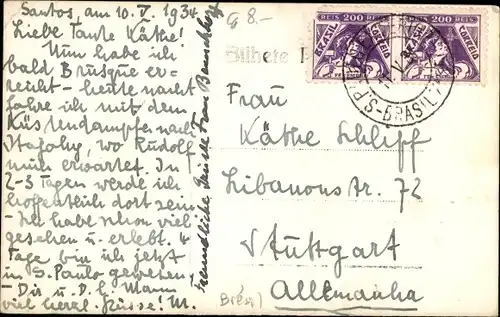 Santos, am 10. V. 1934
Liebe Tante Käthe!
Nun habe ich
bald Brusque er-
reicht – heute nacht
fahre ich mit dem
Küstendampfer nach
Itajahy, wo Rudolf
mich erwartet. In
2-3 Tagen werde ich
hoffentlich dort sein
– Ich habe schon viel
gesehen u. erlebt. 4
Tage bin ich jetzt
in S. Paulo gewesen,
– Dir u. D. l. Mann
viel herzl. Grüsse! M.
Freundliche Grüsse Frau
8.-
Bilhete
BRASIL REIS 200 REIS CORREIO
BRASIL REIS 200 REIS CORREIO
BRASIL
Frau
Käthe Schliff
Libanonstr. 72
Stuttgart
Allemanha